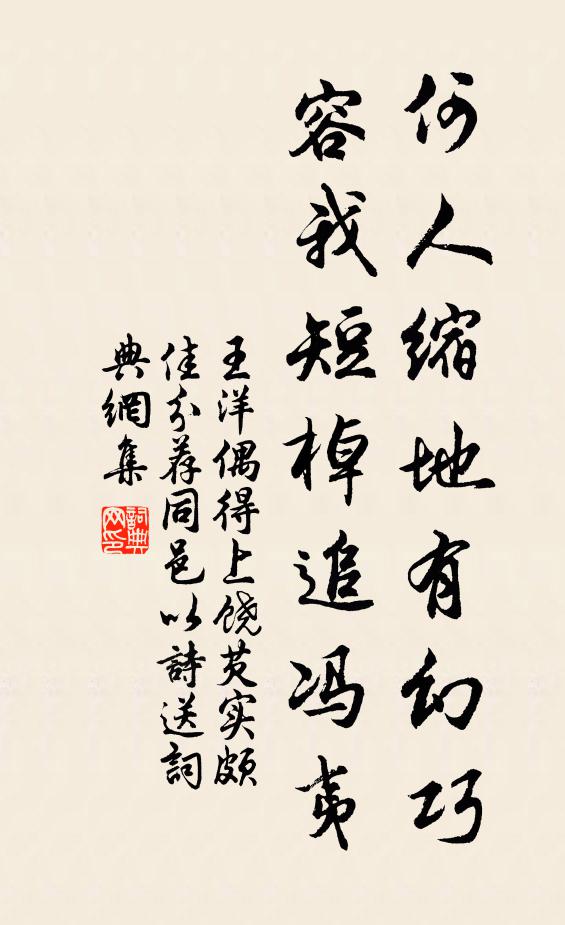 何人缩地有幻巧
容我短棹追冯夷
王洋偶得上饶芡实颇
佳分荐同邑以詩送詞
典網集
詞典网印